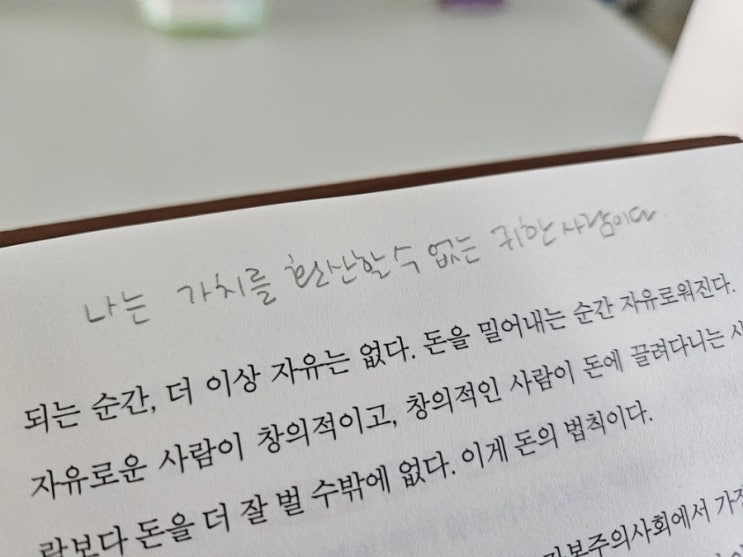 나는 가치를 환산할 수 없는 귀한 사람이다
되는 순간, 더 이상 자유는 없다. 돈을 밀어내는 순간 자유로워진다.
자유로운 사람이 창의적이고, 창의적인 사람이 돈에 끌려다니는 사
람보다 돈을 더 잘 벌 수밖에 없다. 이게 돈의 법칙이다.
본주의사회에서 가장